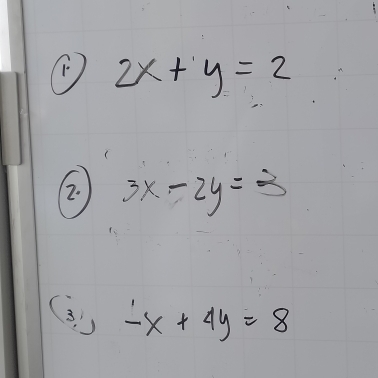 1. 2x + y = 2
2. 3x - 2y = 3
3. -x + 4y = 8